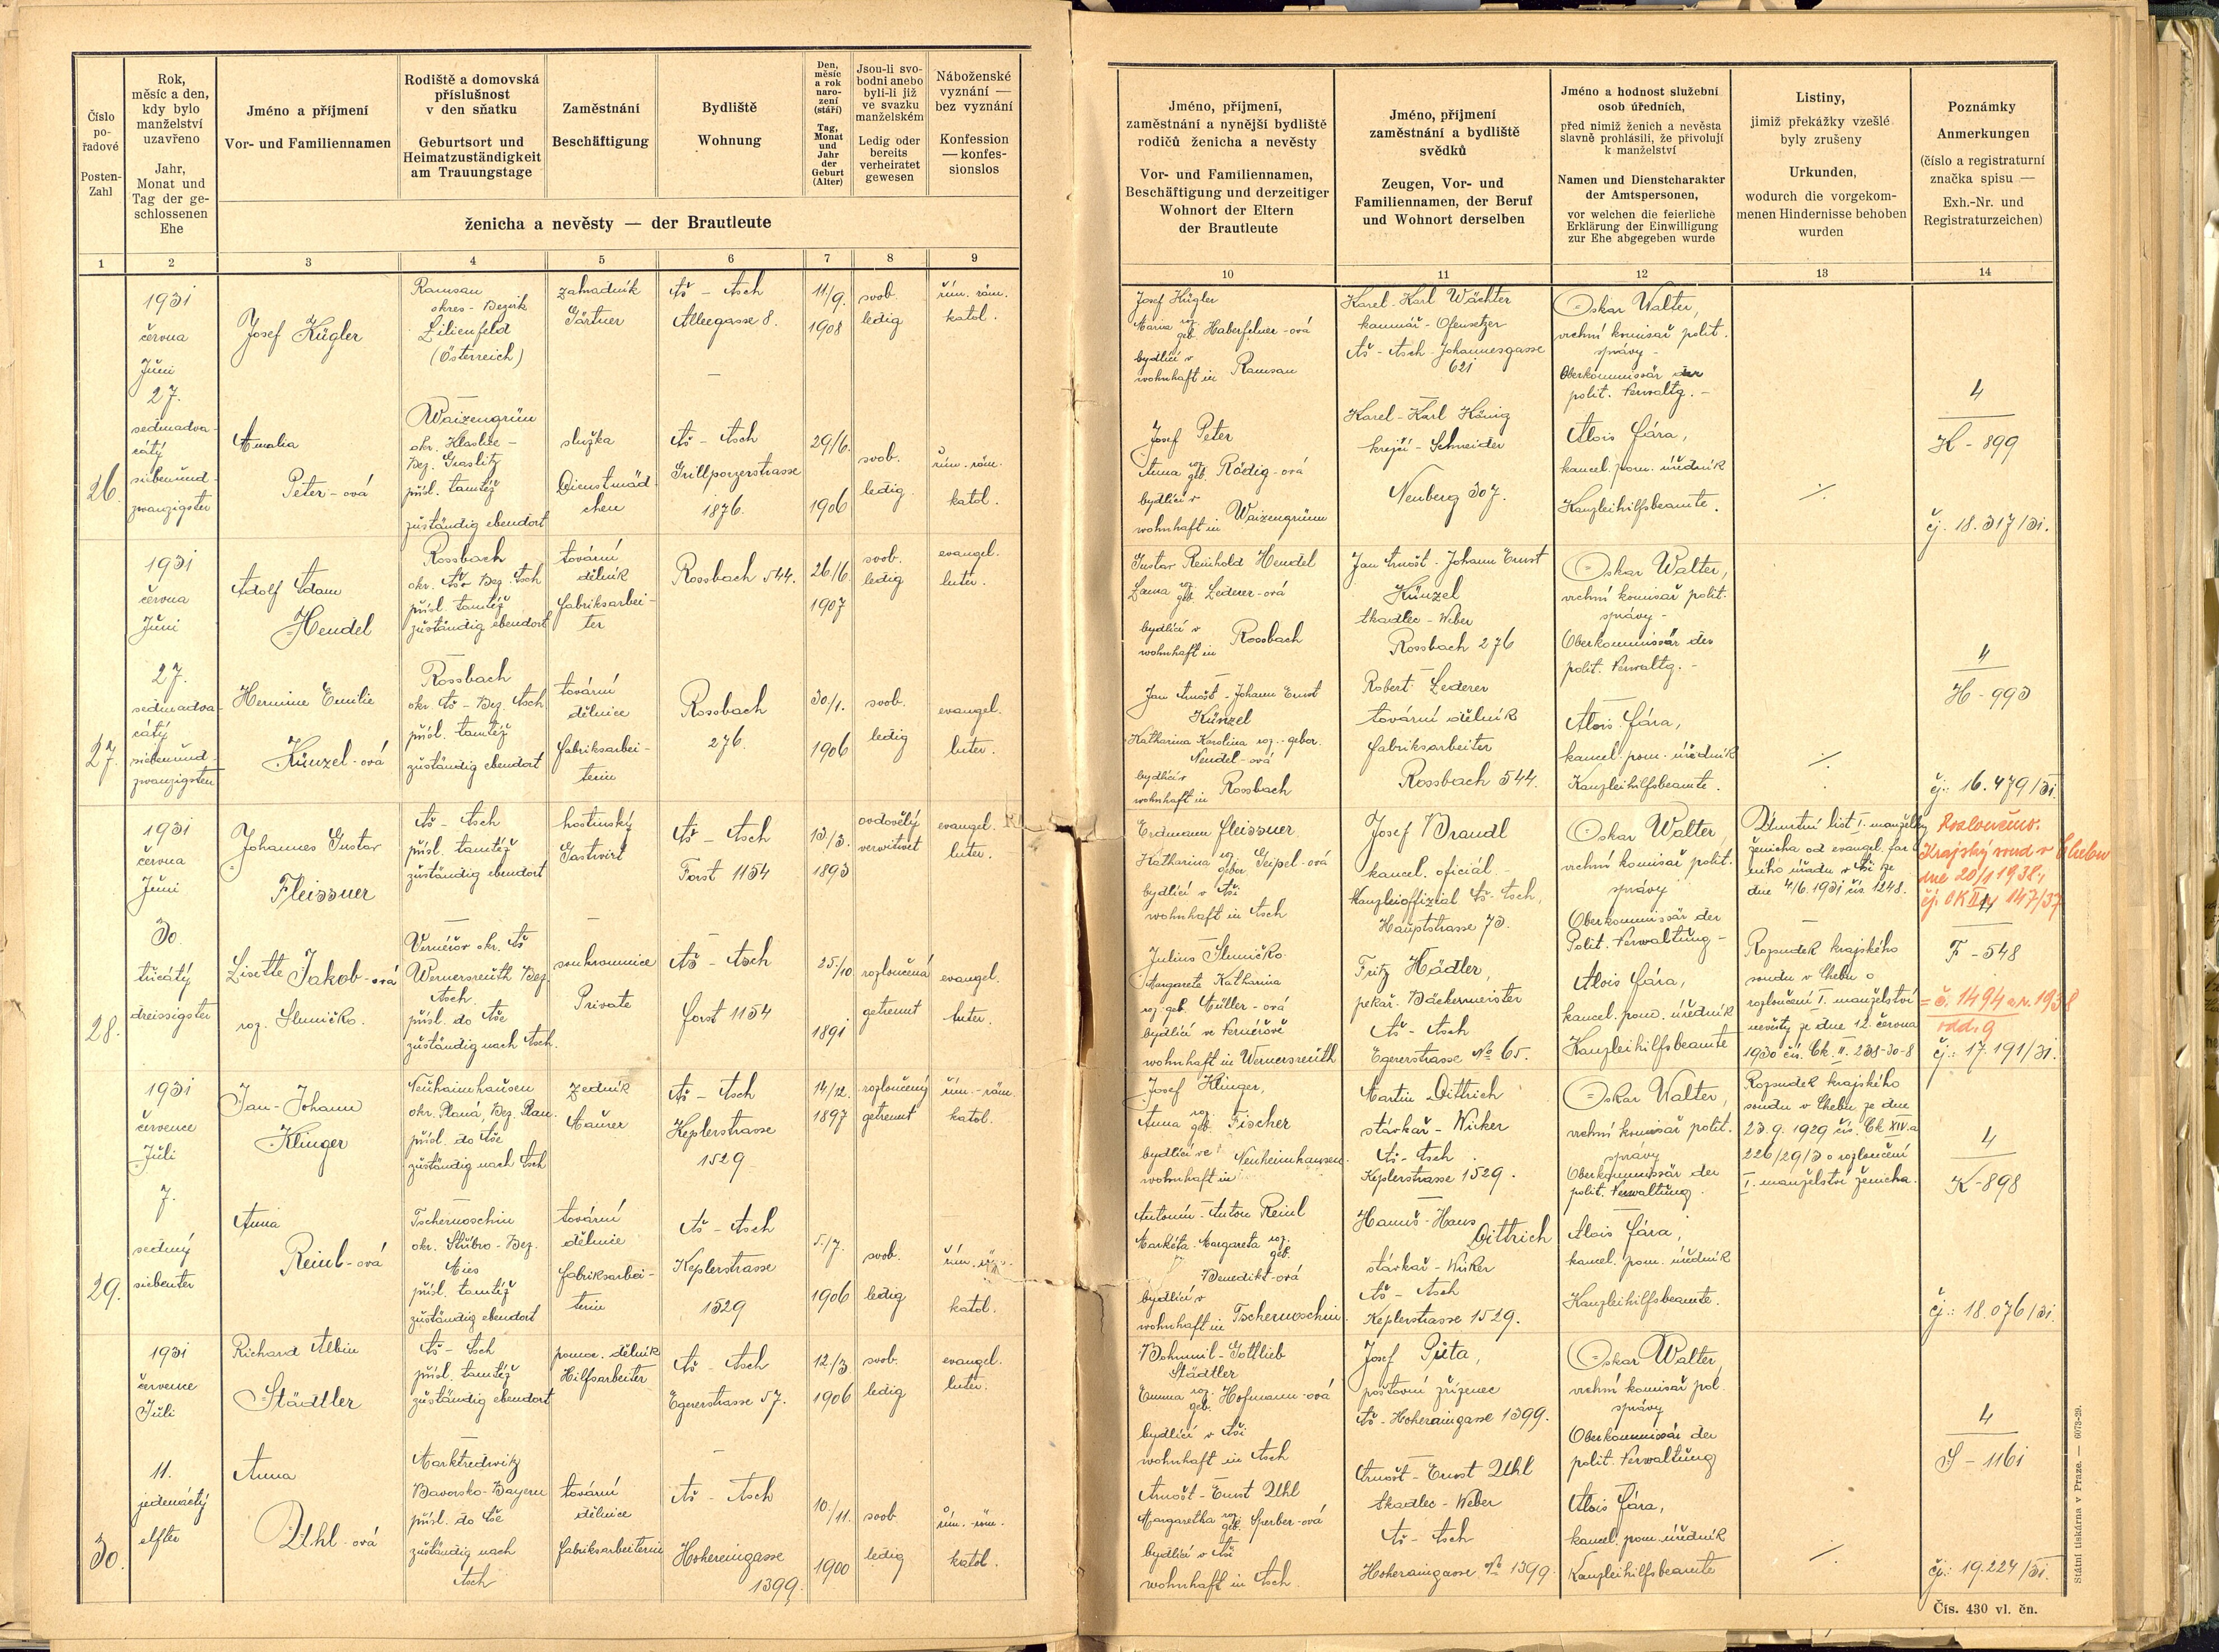 Číslo
po-
řadové
Posten-
Zahl
Rok,
měsíc a den,
kdy bylo
manželství
uzavřeno
Jahr,
Monat und
Tag der ge-
schlossenen
Ehe
Jméno a příjmení
Vor- und Familiennamen
Rodiště a domovská
příslušnost
v den sňatku
Geburtsort und
Heimatzuständigkeit
am Trauungstage
Zaměstnání
Beschäftigung
Bydliště
Wohnung
Den,
měsíc
a rok
naro-
zení
(stáří)
Tag,
Monat
und
Jahr
der
Geburt
(Alter)
Jsou-li svo-
bodni anebo
byli-li již
ve svazku
manželském
Ledig oder
bereits
verheiratet
gewesen
Náboženské
vyznání —
bez vyznání
Konfession
— konfes-
sionslos
ženicha a nevěsty — der Brautleute
1 2 3 4 5 6 7 8 9
Jméno, příjmení,
zaměstnání a nynější bydliště
rodičů ženicha a nevěsty
Vor- und Familiennamen,
Beschäftigung und derzeitiger
Wohnort der Eltern
der Brautleute
Jméno, příjmení
zaměstnání a bydliště
svědků
Zeugen, Vor- und
Familiennamen, der Beruf
und Wohnort derselben
Jméno a hodnost služební
osob úředních,
před nimiž ženich a nevěsta
slavně prohlásili, že přivolují
k manželství
Namen und Dienstcharakter
der Amtspersonen,
vor welchen die feierliche
Erklärung der Einwilligung
zur Ehe abgegeben wurde
Listiny,
jimiž překážky vzešlé
byly zrušeny
Urkunden,
wodurch die vorgekom-
menen Hindernisse behoben
wurden
Poznámky
Anmerkungen
(číslo a registraturní
značka spisu —
Exh.-Nr. und
Registraturzeichen)
10 11 12 13 14
26.
1931
června
Juni
27.
sedmadva-
cátý
siebenund-
zwanzigster
Josef Kügler
Ramsau
okres - Bezirk
Lilienfeld
(Österreich)
zahradník
Gärtner
Aš - Asch
Alleegasse 8.
11/9.
1908
svob.
ledig
řím. röm.
katol.
Amalia
Peter-ová
Waizengrün
okr. Kraslice -
Bez. Graslitz
přísl. tamtéž
zuständig ebendort
služka
Dienstmäd-
chen
Aš - Asch
Grillparzerstrasse
1876.
29/6.
1906
svob.
ledig.
řím. röm.
katol.
Josef Kügler
Maria roz. geb. Haberfelner-ová
bydlící v
wohnhaft in Ramsau
Josef Peter
Anna roz. geb. Rödig-ová
bydlící v
wohnhaft in Waizengrünn
Karel - Karl Wächter
kamnář - Ofensetzer
Aš - Asch - Johannesgasse
621
Karel - Karl König
krejčí - Schneider
Neuberg 307.
Oskar Walter,
vrchní komisař polit.
správy -
Oberkommissär der
polit. Verwaltg. -
Alois Fára,
kancel. pom. úředník
Kanzleihilfsbeamte.
./.
4
K - 899
čj. 18.317/31.
27.
1931
června
Juni
27.
sedmadva-
cátý
siebenund-
zwanzigsten
Adolf Adam
Hendel
Rossbach
okr. Aš - Bez. Asch
přísl. tamtéž
zuständig ebendort
tovární
dělník
Fabriksarbei-
ter
Rossbach 544.
26/6
1907
svob.
ledig
evangel.
luter.
Hermine Emilie
Künzel-ová
Rossbach
okr. Aš - Bez. Asch
přísl. tamtéž
zuständig ebendort
tovární
dělnice
Fabriksarbei-
terin
Rossbach
276.
30/1.
1906
svob.
ledig
evangel.
luter.
Gustav Reinhold Hendel
roz. geb. Lederer-ová
bydlící v
wohnhaft in Rossbach
Jan Arnošt - Johann Ernst
Künzel
Katharina Karolina roz. - gebor.
bydlící v
wohnhaft in Rossbach
Jan Arnošt - Johann Ernst
Künzel
tkadlec - Weber
Rossbach 276
Robert Lederer
tovární dělník
Fabriksarbeiter
Rossbach 544.
Oskar Walter,
vrchní komisař polit.
správy -
Oberkommissär der
polit. Verwaltg. -
Alois Fára,
kancel. pom. úředník
Kanzleihilfsbeamte.
./.
4
H - 993
čj: 16.479/31.
28.
1931
června
Juni
30.
třicátý
dreissigster
Johannes Gustav
Fleissner
Aš - Asch
přísl. tamtéž
zuständig ebendort
hostinský
Gastwirt
Aš - Asch
Forst 1154
13/3.
1893
ovdovělý
verwitwet
evangel.
luter.
Lisette Jakob-ová
roz. Sluničko.
Vernéřov okr. Aš
Wernersreuth Bez.
Asch
přísl. do Aše
zuständig nach Asch.
soukromnice
Private
Aš - Asch
Forst 1154
25./10
1891
rozloučená
getrennt
evangel.
luter.
Erdmann Fleissner
Katharina roz. gebor. Geipel-ová
bydlící v Aši
wohnhaft in Asch
Julius Slunička
Margareta Katharina
roz. geb. Müller-ová
bydlící ve Vernéřově
wohnhaft in Wernersreuth
Josef Brandl
kancel. oficiál. -
Kanzleioffizial Aš-Asch,
Hauptstrasse 73.
Fritz Hädler,
pekař. Bäckermeister
Aš - Asch
Egererstrasse № 65.
Oskar Walter,
vrchní komisař polit.
správy
Oberkommissär der
Polit. Verwaltung -
Alois Fára,
kancel. pom. úředník
Kanzleihilfsbeamte
Úmrtní list I. manželky
ženicha od evangel. far-
ního úřadu v Aši ze
dne 4/6. 1931 čís. 1248.
Rozsudek krajského
soudu v Chebu o
rozloučení I. manželství
nevěsty ze dne 12. června
1930 čís. Ck. II. 238-30-8
Rozloučeno.
Krajský soud v Chebu
dne 20/1 1938,
F - 548
= č. 1494 a.r. 1938
odd. 9
čj.: 17.191/31.
29.
1931
července
Juli
7.
sedmý
siebenter
Jan - Johann
Klinger
Neuhaimhausen
okr. Planá, Bez. Plan.
přísl. do Aše
zuständig nach Asch
zedník
Maurer
Aš - Asch
Keplerstrasse
1529
14/12.
1897
rozloučený
getrennt
řím. - röm.
katol.
Anna
Reinl-ová
Tschernoschin
okr. Stříbro - Bez.
Mies
přísl. tamtéž
zuständig ebendort
tovární
dělnice
Fabriksarbei-
terin
Aš - Asch
Keplerstrasse
1529
5./7.
1906
svob.
ledig
řím.
katol.
Josef Klinger,
Anna roz. geb. Fischer
bydlící ve
wohnhaft in Neuheimhausen.
Antonín - Anton Reinl
Markéta. Margareta roz. geb.
Benedikt-ová
bydlící v
wohnhaft in Tschernoschin
Martin Dittrich
stávkař - Wirker
Aš - Asch
Keplerstrasse 1529.
Hanuš - Hans
Dittrich
stávkař - Wirker
Aš - Asch
Keplerstrasse 1529.
Oskar Walter,
vrchní komisař polit.
správy
Oberkommissär der
polit. Verwaltung.
Alois Fára,
kancel. pom. úředník
Kanzleihilfsbeamte.
Rozsudek krajského
soudu v Chebu ze dne
23.9.1929 čís. Ck XIV.a
226/29/3 o rozloučení
I. manželství ženicha.
4
K - 898
čj.: 18.076/31.
30.
1931
července
Juli
11.
jedenáctý
elfter
Richard Albin
Städtler
Aš - Asch
přísl. tamtéž
zuständig ebendort
pomoc. dělník
Hilfsarbeiter
Aš - Asch
Egererstrasse 57.
12./3
1906
svob.
ledig
evangel.
luter.
Anna
Uhl-ová
Marktredwitz
Bavorsko - Bayern
přísl. do Aše
zuständig nach
Asch
tovární
dělnice
Fabriksarbeiterin
Aš - Asch
Hohereingasse
1399.
10./11.
1900
svob.
ledig
řím. - röm.
katol.
Bohumil - Gottlieb
Städtler
Emma roz. geb. Hofmann-ová
bydlící v Aši
wohnhaft in Asch
Arnošt - Ernst Uhl
Margaretha roz. geb. Sperber-ová
bydlící v Aši
wohnhaft in Asch.
Josef Půta,
poštovní zřízenec
Aš - Hoheraingasse 1399.
Arnošt - Ernst Uhl
tkadlec - Weber
Aš - Asch
Hoheraingasse № 1399.
Oskar Walter,
vrchní komisař pol.
správy
Oberkommissär der
polit. Verwaltung
Alois Fára,
kancel. pom. úředník
Kanzleihilfsbeamte
./.
4
S - 1161
čj.: 19.224/31.
Státní tiskárna v Praze. — 6073-29.
Čís. 430 vl. čn.